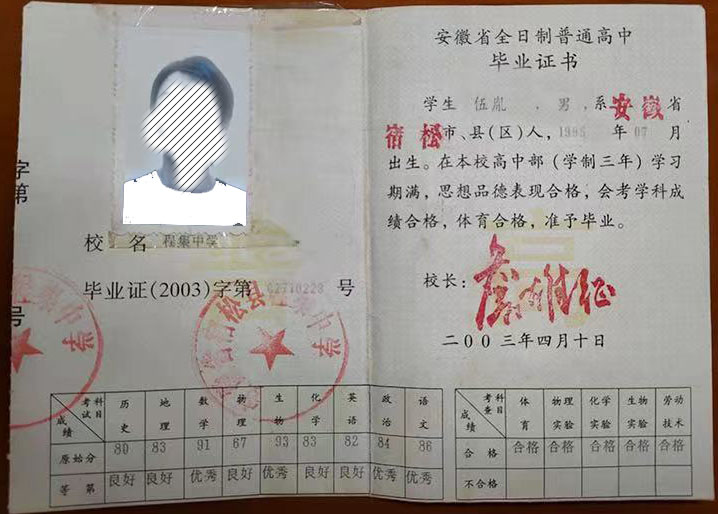 字
第
号
校 名 程集中学
毕业证(2003)字第 02710223 号
考试科目 历史 地理 数学 物理 生物 化学 英语 政治 语文
成绩
原始分 80 83 91 67 93 83 82 84 86
等第 良好 良好 优秀 良好 优秀 良好 良好 优秀 优秀
安徽省全日制普通高中
毕业证书
学生 伍胤 、男，系安徽省
宿松市、县(区)人，1985 年 07 月
出生。在本校高中部（学制三年）学习
期满，思想品德表现合格，会考学科成
绩合格，体育合格，准予毕业。
校长：
二00三年四月十日
考查科目 体育 物理实验 化学实验 生物实验 劳动技术
成绩
合格 合格 合格 合格 合格 合格
不合格